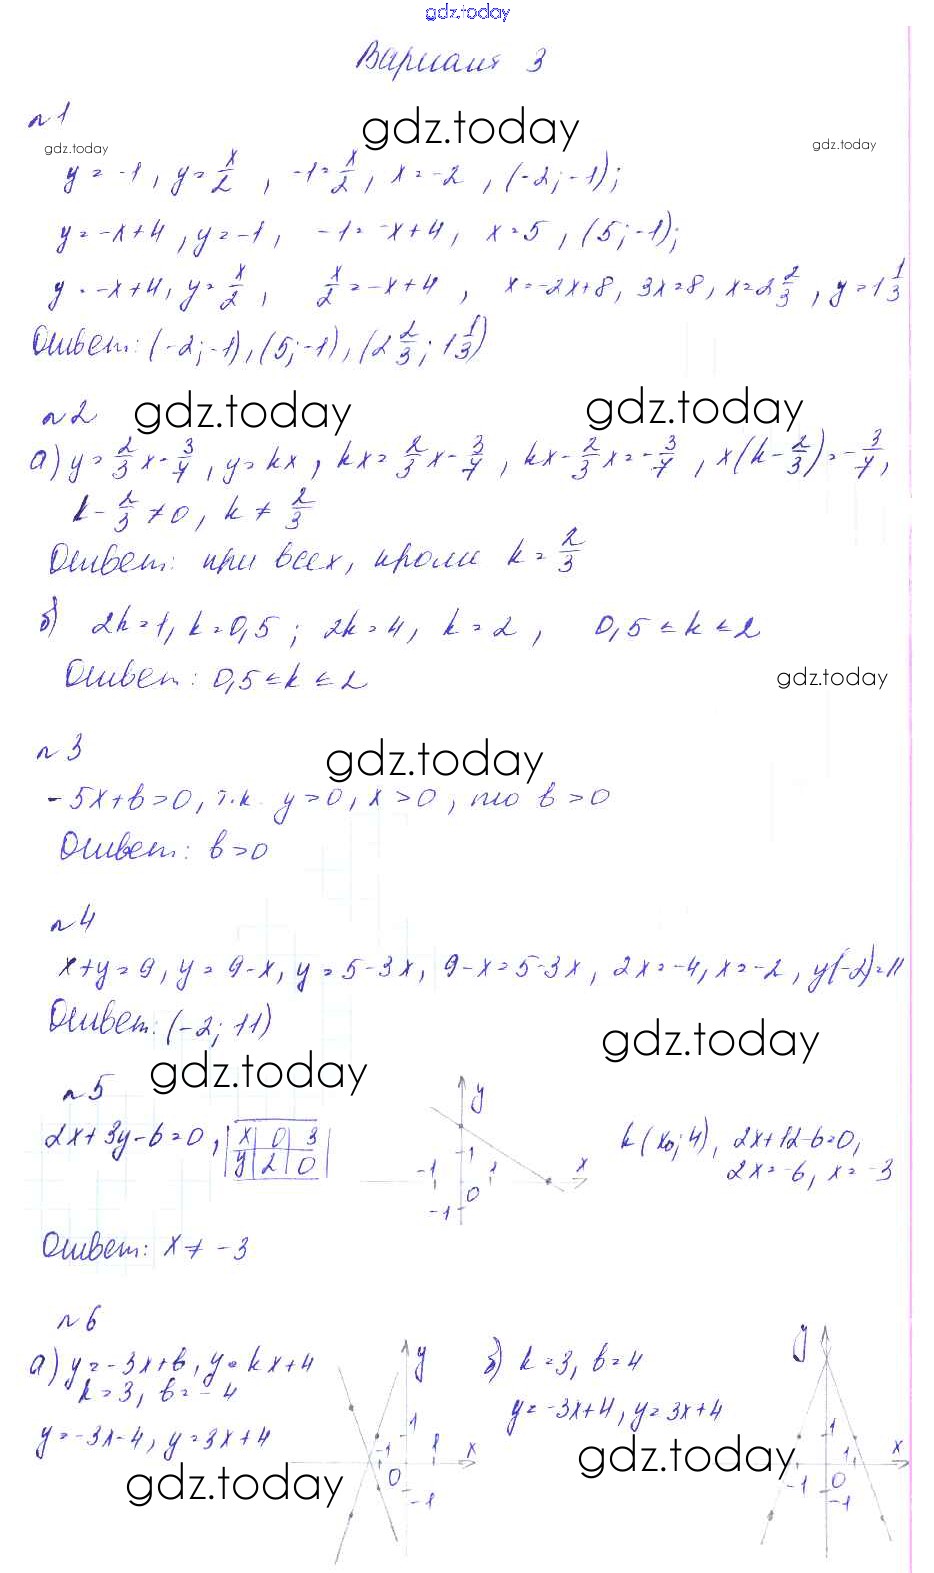 gdz.today
Вариант 3
№1
gdz.today
gdz.today
gdz.today
y = -1, y = x/2, -1 = x/2, x = -2, (-2; -1);
y = -x+4, y = -1, -1 = -x+4, x = 5, (5; -1);
y = -x+4, y = x/2, x/2 = -x+4, x = -2x+8, 3x = 8, x = 2 2/3, y = 1 1/3
Ответ: (-2; -1), (5; -1), (2 2/3; 1 1/3)
№2
gdz.today
gdz.today
а) y = 2/3 x - 3/7, y = kx, kx = 2/3 x - 3/7, kx - 2/3 x = -3/7, x(k - 2/3) = -3/7,
k - 2/3 ≠ 0, k ≠ 2/3
Ответ: при всех, кроме k = 2/3
б) 2k = 1, k = 0,5; 2k = 4, k = 2, 0,5 ≤ k ≤ 2
Ответ: 0,5 ≤ k ≤ 2
gdz.today
№3
gdz.today
-5x+b>0, т.к. y>0, x>0, то b>0
Ответ: b>0
№4
x+y=9, y=9-x, y=5-3x, 9-x=5-3x, 2x=-4, x=-2, y(-2)=11
Ответ: (-2; 11)
gdz.today
gdz.today
№5
2x+3y-6=0,
x 0 3
y 2 0
y
-1
1
1
x
0
-1
k(x₀; 4), 2x+12-6=0,
2x=-6, x=-3
Ответ: x ≠ -3
№6
а) y=-3x+b, y=kx+4
k=3, b=-4
y=-3x-4, y=3x+4
y
1
-1
1
x
0
-1
б) k=3, b=4
y=-3x+4, y=3x+4
y
1
1
x
-1
0
-1
gdz.today
gdz.today